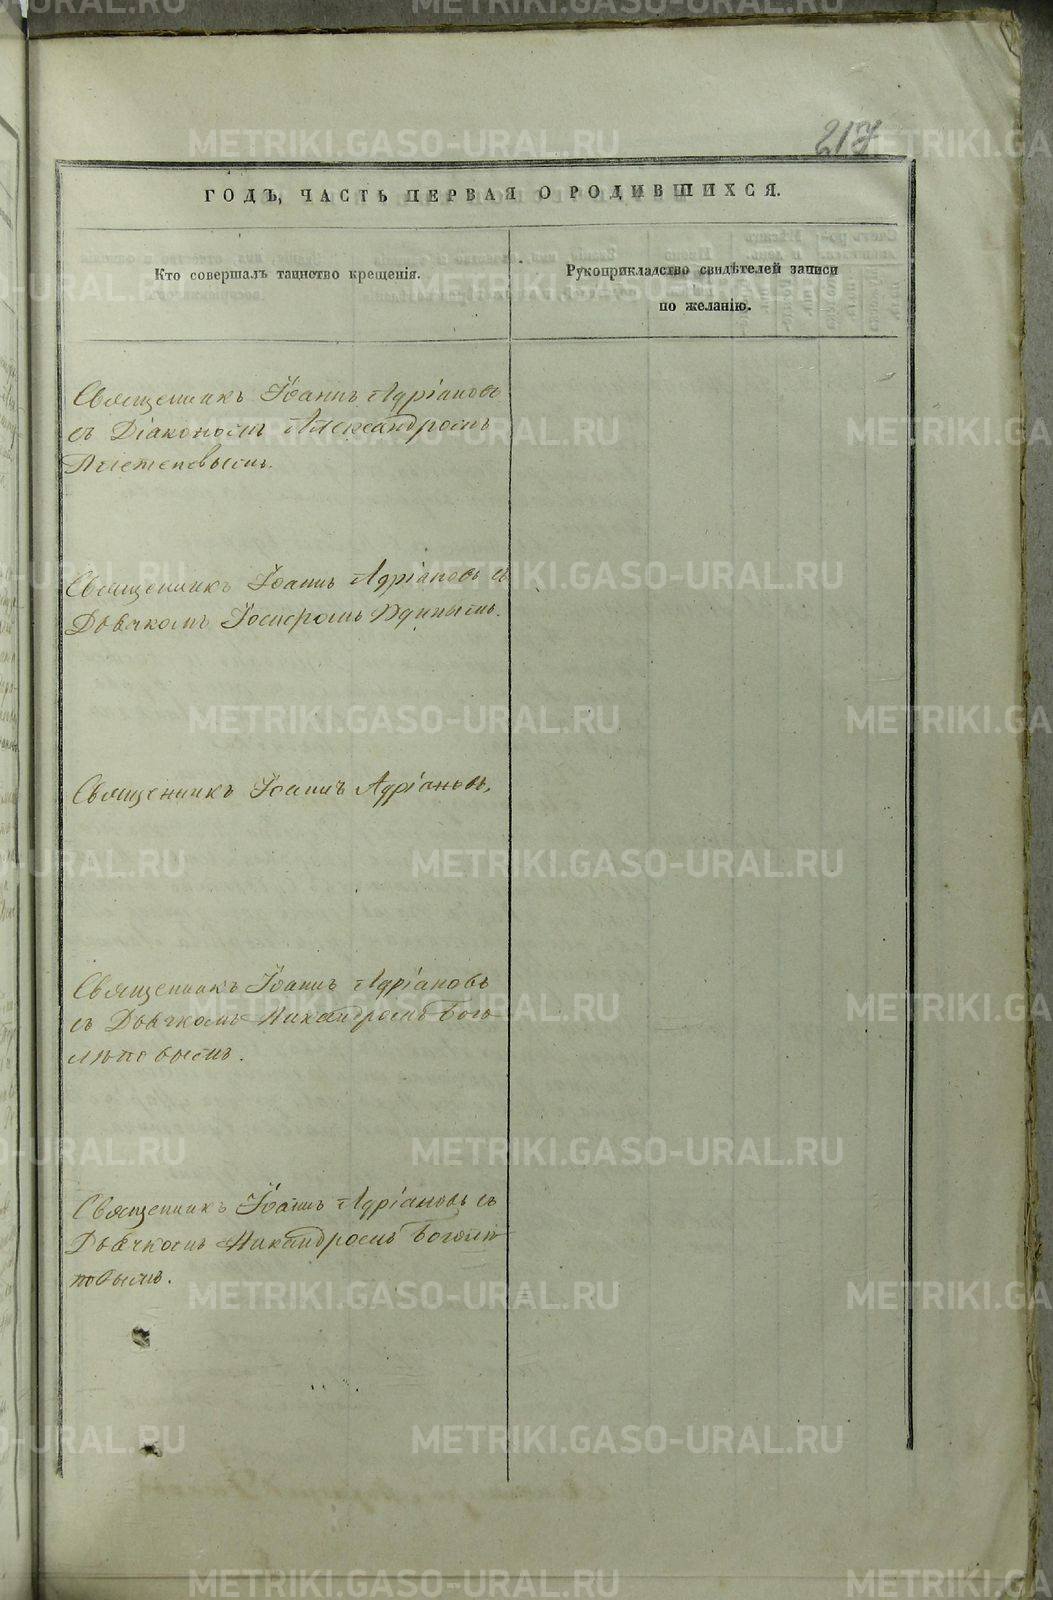 217
ГОДЪ, ЧАСТЬ ПЕРВАЯ О РОДИВШИХСЯ.
Кто совершалъ таинство крещенія.
Рукоприкладство свидѣтелей записи
по желанію.
Священникъ Іоаннъ Адріановъ
съ Діакономъ Александромъ
Священникъ Іоаннъ Адріановъ съ
Дьячкомъ
Священникъ Іоаннъ Адріановъ.
Священникъ Іоаннъ Адріановъ
съ Дьячкомъ Никандромъ Бого
лѣповымъ.
Священникъ Іоаннъ Адріановъ съ
Дьячкомъ Никандромъ Боголѣ
повымъ.
METRIKI.GASO-URAL.RU